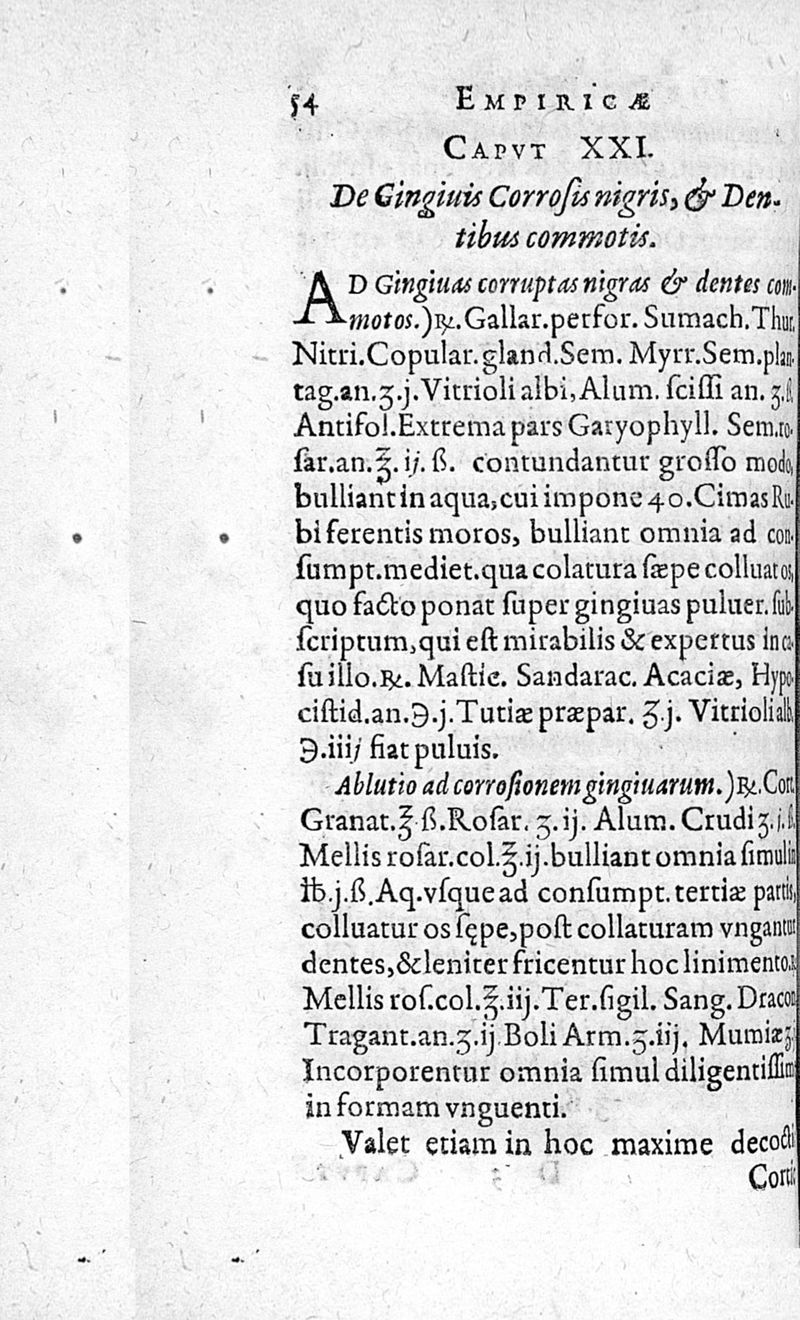 54 EMPIRICÆ
CAPVT XXI.
De Gingiuis Corroſis nigris, & Den-
tibus commotis.
AD Gingiuas corruptas nigras & dentes com-
motos.)℞.Gallar.perfor. Sumach.Thur.
Nitri.Copular.gland.Sem. Myrr.Sem.plan-
tag.an.ʒ.j.Vitrioli albi,Alum. ſciſſi an. ʒ.ß.
Antifol.Extrema pars Garyophyll. Sem.ro-
ſar.an.℥.ij.ß. contundantur groſſo modo,
bulliant in aqua,cui impone 40.Cimas Ru-
bi ferentis moros, bulliant omnia ad con-
ſumpt.mediet.qua colatura ſæpe colluat os,
quo facto ponat ſuper gingiuas puluer.ſub-
ſcriptum,qui eſt mirabilis & expertus in ca-
ſu illo.℞. Maſtic. Sandarac. Acaciæ, Hypo-
ciſtid.an.℈.j.Tutiæ præpar. ʒ.j. Vitrioli alb.
℈.iiij fiat puluis.
Ablutio ad corroſionem gingiuarum.)℞.Cort.
Granat.℥.ß.Roſar. ʒ.ij. Alum. Crudi ʒ.j.ß.
Mellis roſar.col.℥.ij.bulliant omnia ſimul in
℔.j.ß.Aq.vſque ad conſumpt. tertiæ partis,
colluatur os ſępe,poſt collaturam vngantur
dentes,& leniter fricentur hoc linimento.℞.
Mellis roſ.col.℥.iij.Ter.ſigil. Sang. Dracon.
Tragant.an.ʒ.ij.Boli Arm.ʒ.iij. Mumiæ
Incorporentur omnia ſimul diligentiſſimè
in formam vnguenti.
Valet etiam in hoc maxime decocti
Cortic